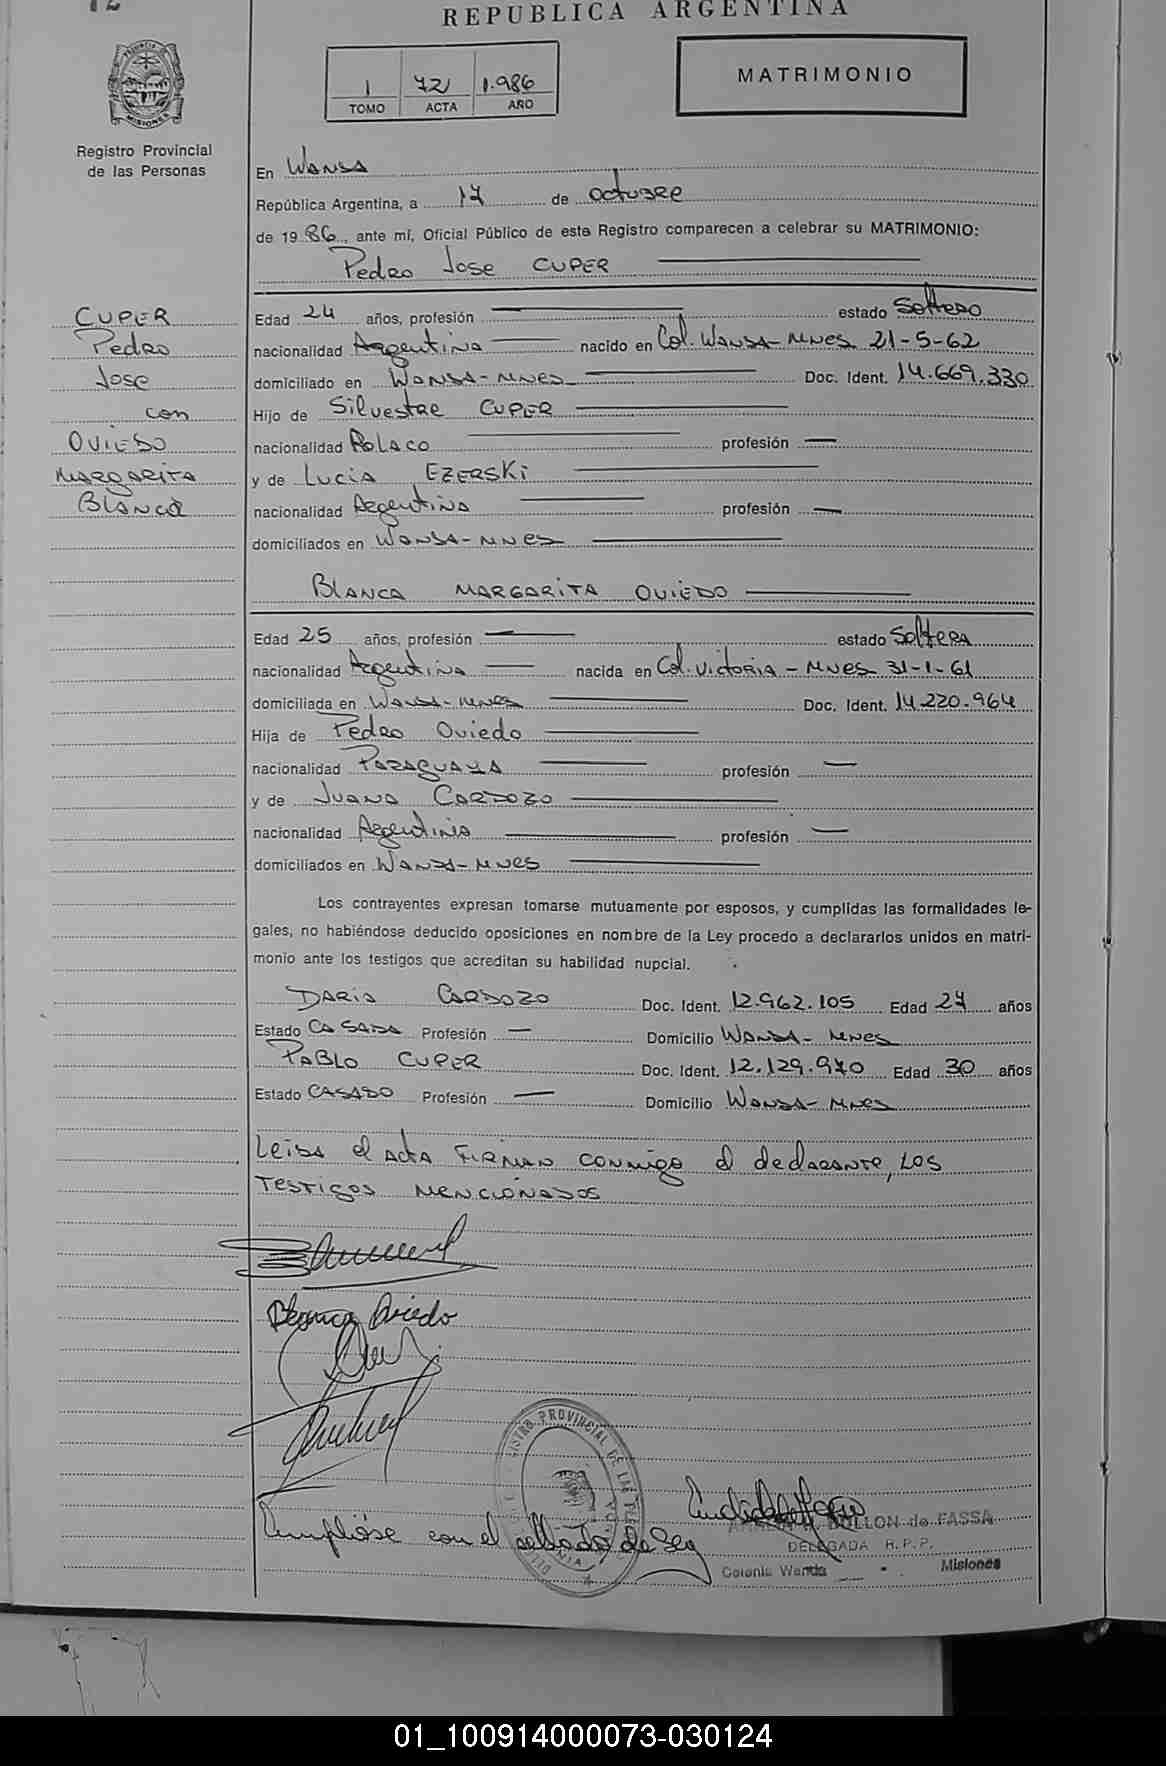 72
REPUBLICA ARGENTINA
1 72 1.986
TOMO ACTA AÑO
MATRIMONIO
PROVINCIA DE
MISIONES
Registro Provincial
de las Personas
En WANDA
República Argentina, a 17 de octubre
de 1986, ante mí, Oficial Público de este Registro comparecen a celebrar su MATRIMONIO:
Pedro Jose CUPER
CUPER
Pedro
Jose
con
OVIEDO
MARGARITA
BLANCA
Edad 24 años, profesión — estado Soltero
nacionalidad Argentina — nacido en Col. WANDA-MNES 21-5-62
domiciliado en WANDA-MNES — Doc. Ident. 14.669.330
Hijo de Silvestre CUPER —
nacionalidad POLACO — profesión —
y de LUCIA EZERSKI —
nacionalidad Argentina — profesión —
domiciliados en WANDA-MNES —
BLANCA MARGARITA OVIEDO —
Edad 25 años, profesión — estado Soltera
nacionalidad Argentina — nacida en Col. VICTORIA - MNES 31-1-61
domiciliada en WANDA-MNES — Doc. Ident. 14.220.964
Hija de Pedro Oviedo —
nacionalidad PARAGUAYA — profesión —
y de JUANA CARDOZO —
nacionalidad Argentina — profesión —
domiciliados en WANDA-MNES —
Los contrayentes expresan tomarse mutuamente por esposos, y cumplidas las formalidades le-
gales, no habiéndose deducido oposiciones en nombre de la Ley procedo a declararlos unidos en matri-
monio ante los testigos que acreditan su habilidad nupcial.
DARIA CARDOZO Doc. Ident. 12.962.105 Edad 27 años
Estado CASADA Profesión — Domicilio WANDA- MNES
PABLO CUPER Doc. Ident. 12.129.970 Edad 30 años
Estado CASADO Profesión — Domicilio WANDA- MNES
Leida el ACTA FIRMAN CONMIGO el declarante, LOS
TESTIGOS MENCIONADOS
Blanca Oviedo
REGISTRO PROVINCIAL DE LAS PERSONAS
Cumpliose con el sellado de Ley
DOLLON de FASSA
DELEGADA R.P.P.
Colonia Wanda - Misiones
01_100914000073-030124